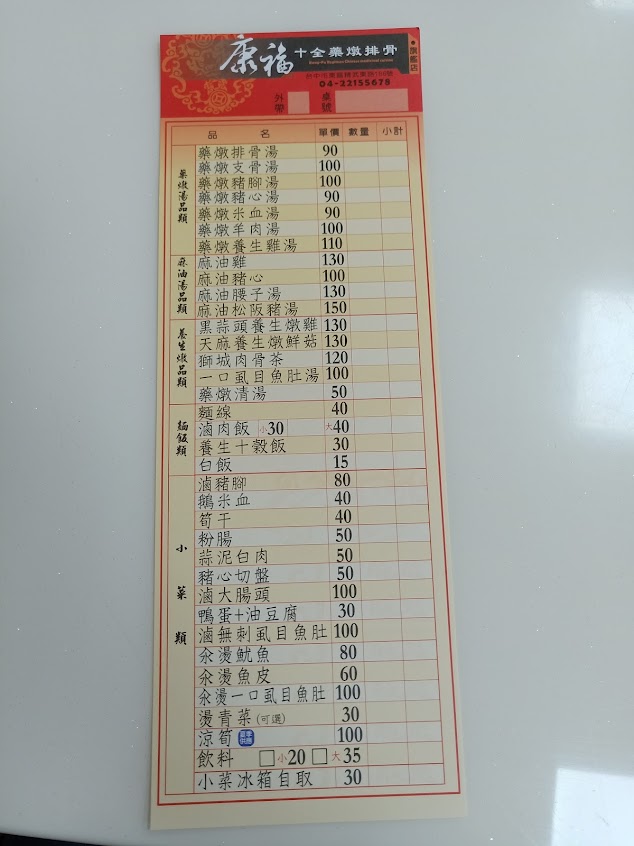 康福 十全藥燉排骨
旗艦店
04-22155678
外帶
桌號
品名 單價 數量 小計
藥燉湯品類
藥燉排骨湯 90
藥燉支骨湯 100
藥燉豬腳湯 100
藥燉豬心湯 90
藥燉米血湯 90
藥燉羊肉湯 100
藥燉養生雞湯 110
麻油湯品類
麻油雞 130
麻油豬心 100
麻油腰子湯 130
麻油松阪豬湯 150
養生燉品類
黑蒜頭養生燉雞 130
天麻養生燉鮮菇 130
獅城肉骨茶 120
一口虱目魚肚湯 100
藥燉清湯 50
麵飯類
麵線 40
滷肉飯 小30 大40
養生十穀飯 30
白飯 15
小菜類
滷豬腳 80
鵝米血 40
筍干 40
粉腸 50
蒜泥白肉 50
豬心切盤 50
滷大腸頭 100
鴨蛋+油豆腐 30
滷無刺虱目魚肚 100
汆燙魷魚 80
汆燙魚皮 60
汆燙一口虱目魚肚 100
燙青菜(可選) 30
涼筍 夏季供應 100
飲料 □小20 □大35
小菜冰箱自取 30